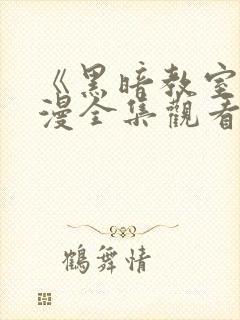 《黑暗教室
漫全集觀看
鶴舞情